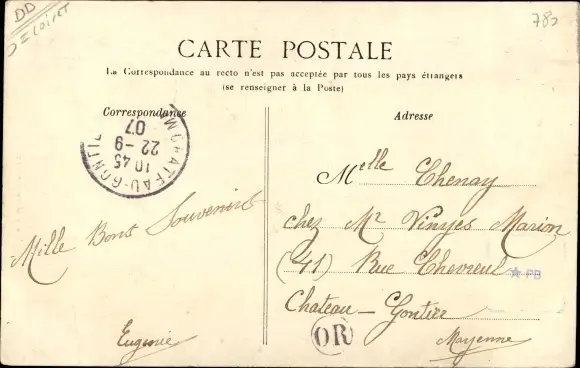 DD
Loiret
780
CARTE POSTALE
La Correspondance au recto n'est pas acceptée par tous les pays étrangers
(se renseigner à la Poste)
Correspondance
Adresse
CHATEAU-GONTIER
10 45
22-9
07
Mille Bons Souvenirs
Eugenie
Melle Chenay
chez Mr Vinyes Marion
(41) Rue Chevreul
Chateau - Gontier
Mayenne
OR
PB